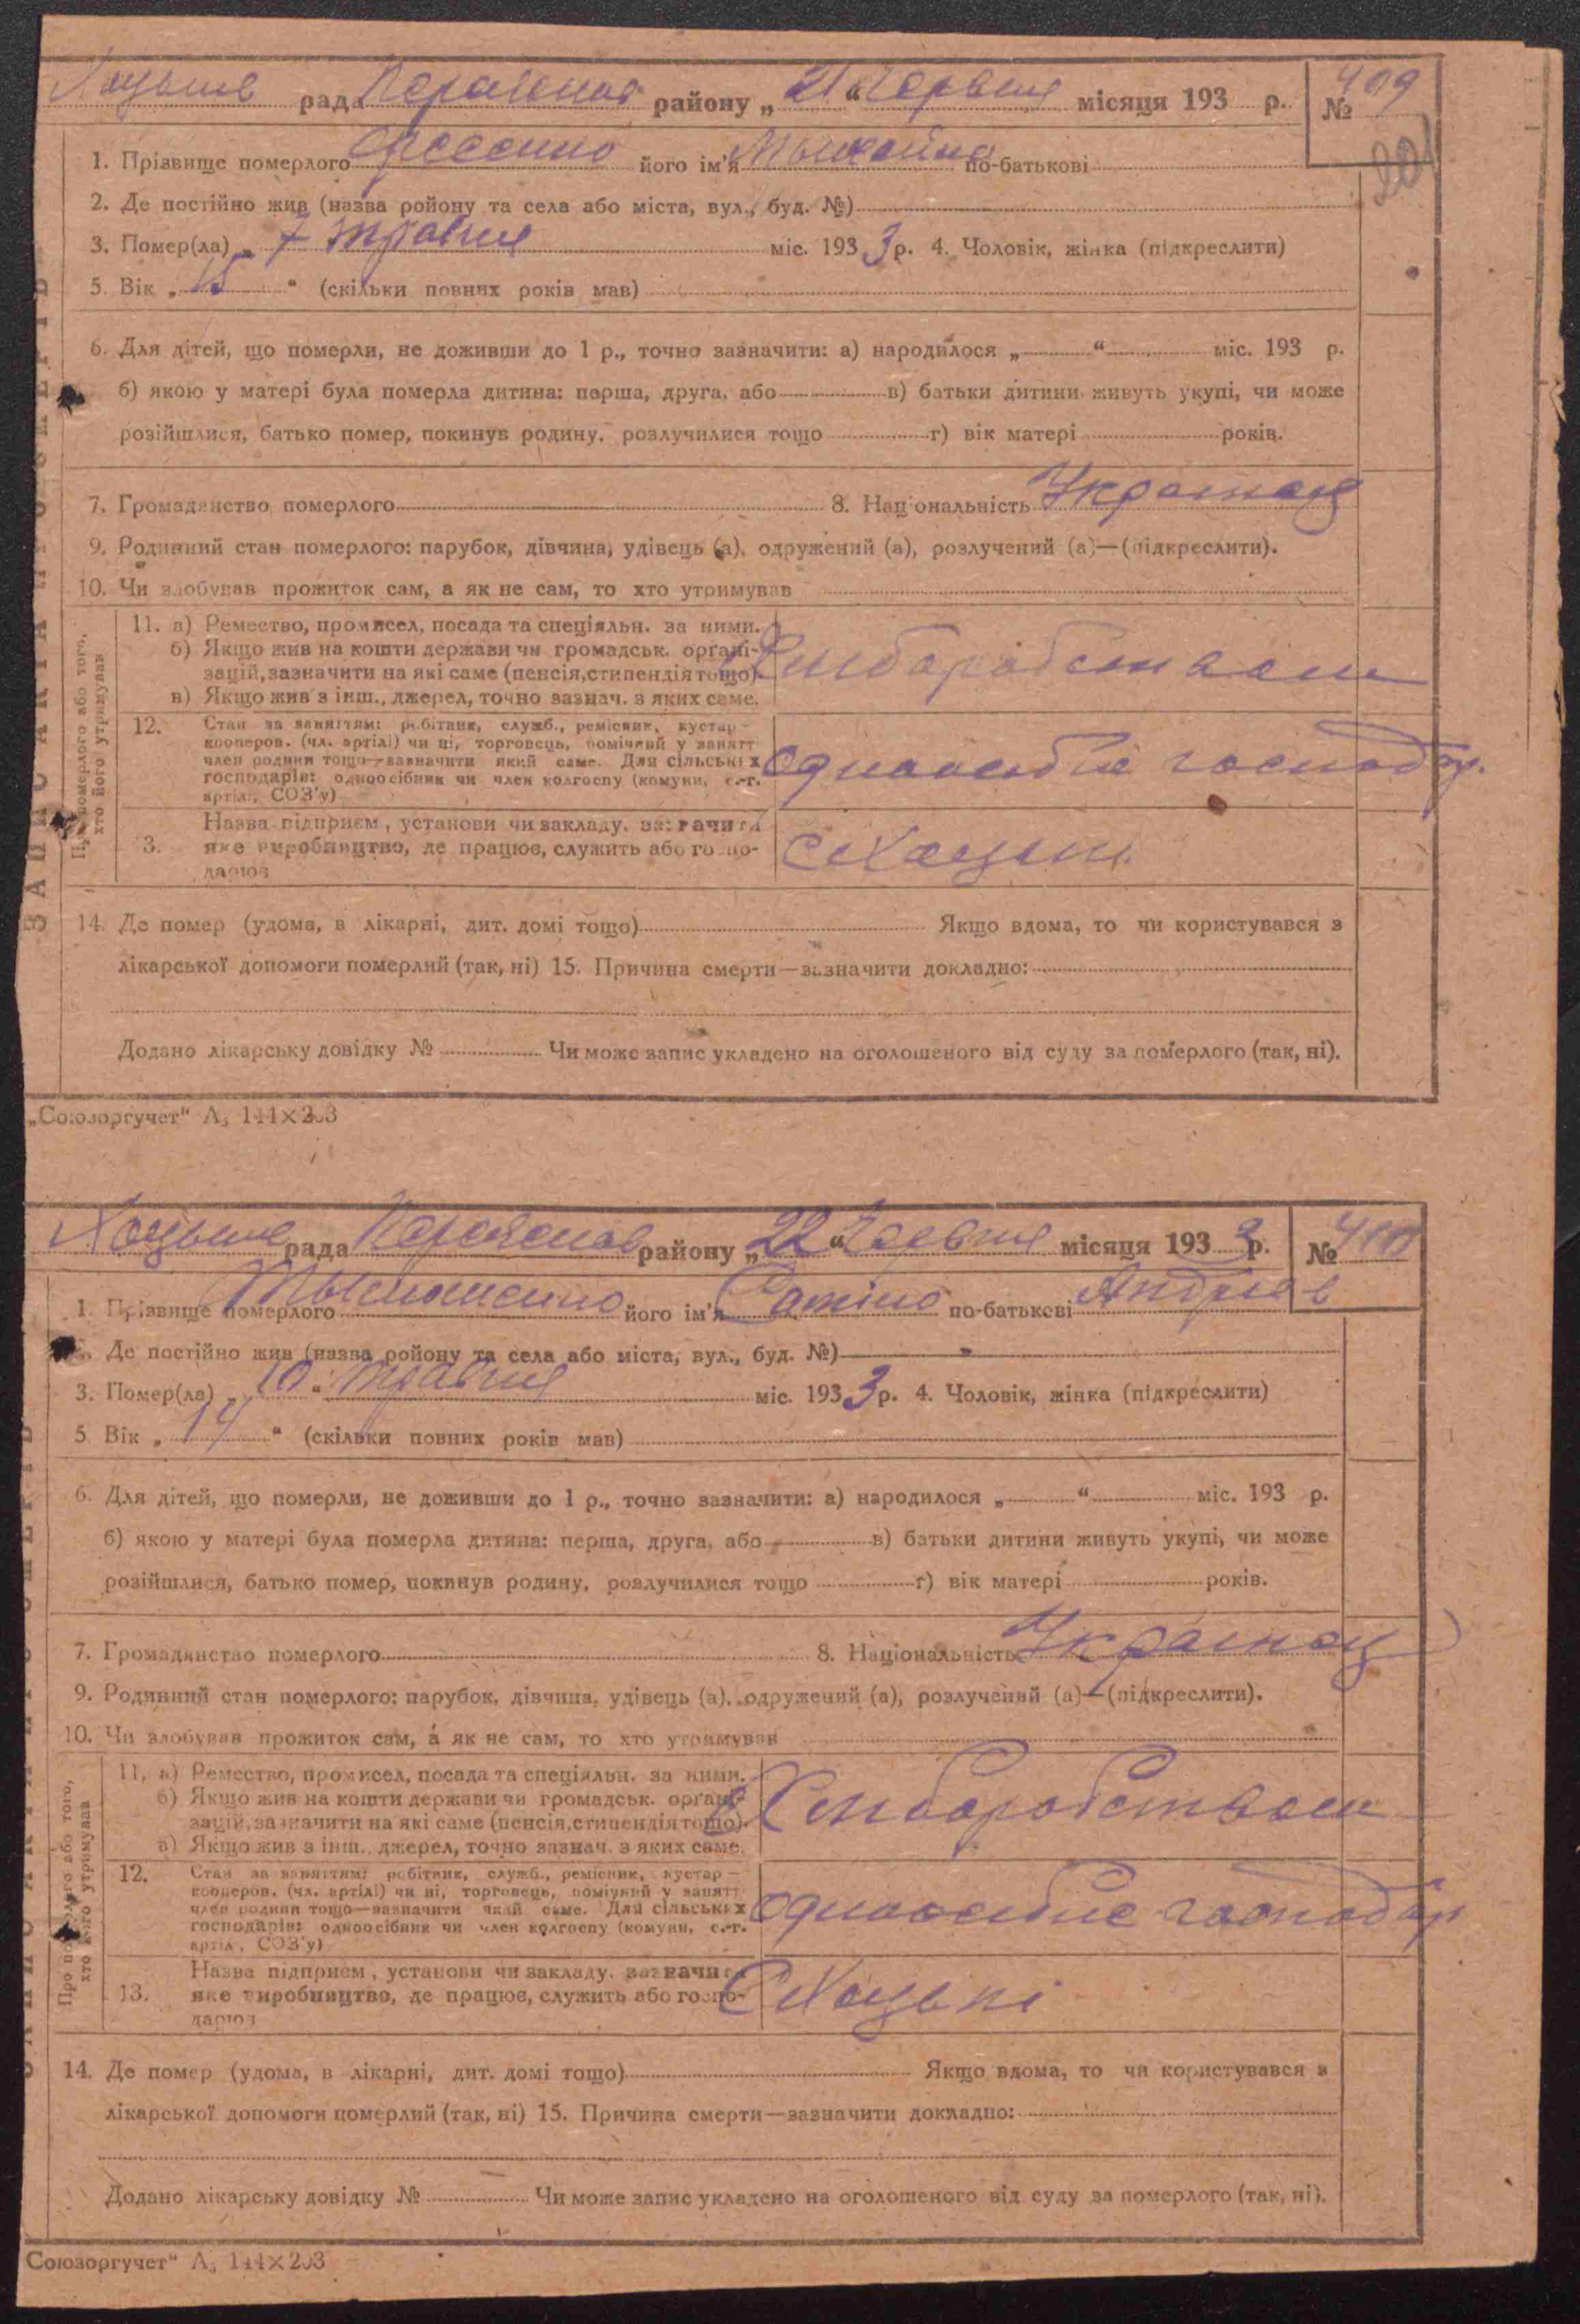 рад району „21" Червня місяця 193 р. № 409
201
1. Прізвище померлого його ім'я по-батькові
2. Де постійно жив (назва ройону та села або міста, вул., буд. №)
3. Помер(ла) „ 7 травня міс. 193 3 р. 4. Чоловік, жінка (підкреслити)
5. Вік „ 15 " (скільки повних років мав)
6. Для дітей, що померли, не доживши до 1 р., точно зазначити: а) народилося „ " міс. 193 р.
б) якою у матері була померла дитина: перша, друга, або в) батьки дитини живуть укупі, чи може
розійшлися, батько помер, покинув родину, розлучилися тощо г) вік матері років.
7. Громадянство померлого 8. Національність Украинец
9. Родинний стан померлого: парубок, дівчина, удівець (а), одружений (а), розлучений (а)—(підкреслити).
10. Чи здобував прожиток сам, а як не сам, то хто утримував
Про померлого або того, хто його утримував
11. а) Ремество, промисел, посада та спеціяльн. за ними.
б) Якщо жив на кошти держави чи громадськ. органі-
зацій, зазначити на які саме (пенсія, стипендія тощо).
в) Якщо жив з інш., джерел, точно зазнач. з яких саме.
12. Стан за заняттям: робітник, служб., ремісник, кустар—
кооперов. (чл. артілі) чи ні, торговець, помічний у занятт
член родини тощо—зазначити який саме. Для сільських
господарів: одноосібник чи член колгоспу (комуни, с.-г.
артілі, СОЗ'у)
господар.
3. Назва підприєм, установи чи закладу, зазначити
яке виробництво, де працює, служить або госпо-
дарює
14. Де помер (удома, в лікарні, дит. домі тощо) Якщо вдома, то чи користувався з
лікарської допомоги померлий (так, ні) 15. Причина смерти—зазначити докладно:
Додано лікарську довідку № Чи може запис укладено на оголошеного від суду за померлого (так, ні).
„Союзоргучет" А₅ 144×203
рада району „22" Червня місяця 193 3 р. № 410
1. Прізвище померлого його ім'я по-батькові Андріев
2. Де постійно жив (назва ройону та села або міста, вул., буд. №) "
3. Помер(ла) „ 10 " травня міс. 193 3 р. 4. Чоловік, жінка (підкреслити)
5. Вік „ 14 " (скільки повних років мав)
6. Для дітей, що померли, не доживши до 1 р., точно зазначити: а) народилося „ " міс. 193 р.
б) якою у матері була померла дитина: перша, друга, або в) батьки дитини живуть укупі, чи може
розійшлися, батько помер, покинув родину, розлучилися тощо г) вік матері років.
7. Громадянство померлого 8. Національність Украинец
9. Родинний стан померлого: парубок, дівчина, удівець (а), одружений (а), розлучений (а)—(підкреслити).
10. Чи здобував прожиток сам, а як не сам, то хто утримував
Про померлого або того, хто його утримував
11. а) Ремество, промисел, посада та спеціяльн. за ними.
б) Якщо жив на кошти держави чи громадськ. органі-
зацій, зазначити на які саме (пенсія, стипендія тощо).
в) Якщо жив з інш., джерел, точно зазнач. з яких саме.
12. Стан за заняттям: робітник, служб., ремісник, кустар—
кооперов. (чл. артілі) чи ні, торговець, помічний у занятт
член родини тощо—зазначити який саме. Для сільських
господарів: одноосібник чи член колгоспу (комуни, с.-г.
артілі, СОЗ'у)
господар
13. Назва підприєм, установи чи закладу, зазначити
яке виробництво, де працює, служить або госпо-
дарює
С Хоцькі
14. Де помер (удома, в лікарні, дит. домі тощо) Якщо вдома, то чи користувався з
лікарської допомоги померлий (так, ні) 15. Причина смерти—зазначити докладно:
Додано лікарську довідку № Чи може запис укладено на оголошеного від суду за померлого (так, ні).
Союзоргучет" А₅ 144×203